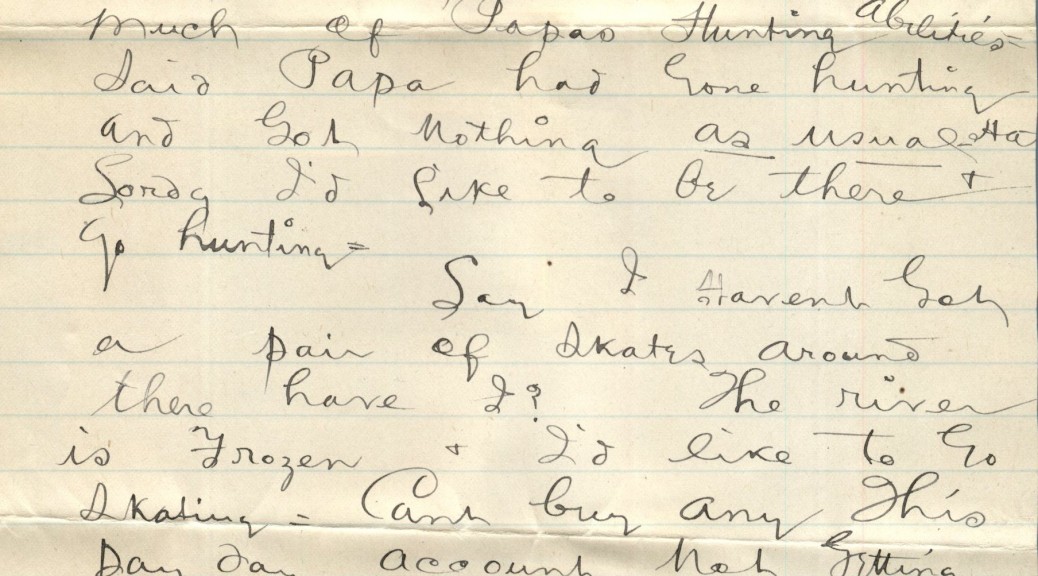 much of Papas Hunting Abilities=
Said Papa had Gone hunting
and Got Nothing as usual= Ha
Lordy I'd Like to Be there +
Go hunting=
Say I Havent Got
a pair of Skates around
there have I? The river
is Frozen + I'd like to Go
Skating = Cant buy any This
Pay day account Not Getting